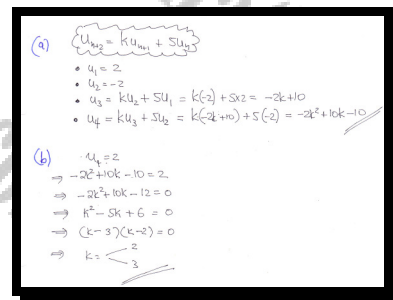 (a) Uₙ₊₂ = kuₙ₊₁ + 5Uₙ
• u₁ = 2
• u₂ = -2
• u₃ = ku₂ + 5u₁ = k(-2) + 5×2 = -2k+10
• u₄ = ku₃ + 5u₂ = k(-2k+10) + 5(-2) = -2k²+10k-10
(b) u₄ = 2
⇒ -2k²+10k-10 = 2
⇒ -2k²+10k-12 = 0
⇒ k² - 5k + 6 = 0
⇒ (k-3)(k-2) = 0
⇒ k = 2
3